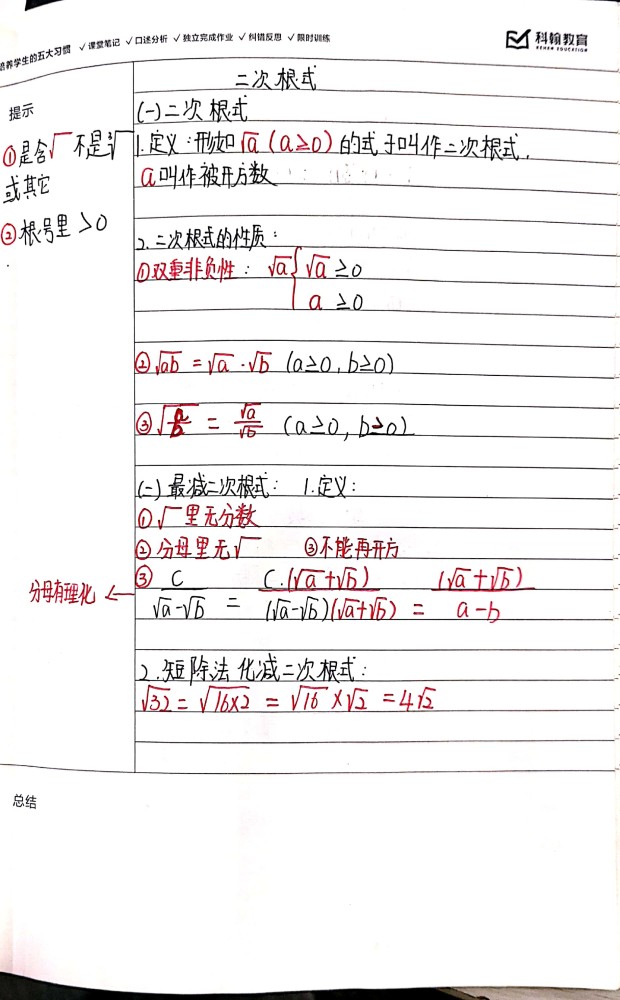 培养学生的五大习惯 ✓课堂笔记 ✓口述分析 ✓独立完成作业 ✓纠错反思 ✓限时训练
科翰教育
KEHAN EDUCATION
提示
①是含√ 不是∛
或其它
②根号里 >0
二次根式
(一)二次根式
1.定义:形如√a (a≥0) 的式子叫作二次根式.
a叫作被开方数
2.二次根式的性质:
①双重非负性: √a{ √a ≥0
a ≥0
②√ab = √a · √b (a≥0, b≥0)
③√(a/b) = √a/√b (a≥0, b≥0)
(二)最减二次根式: 1.定义:
①√里无分数
②分母里无√ ③不能再开方
分母有理化 ←
③ C/(√a-√b) = C·(√a+√b)/((√a-√b)(√a+√b)) = (√a+√b)/(a-b)
2.短除法化减二次根式:
√32 = √16×2 = √16 × √2 = 4√2
总结